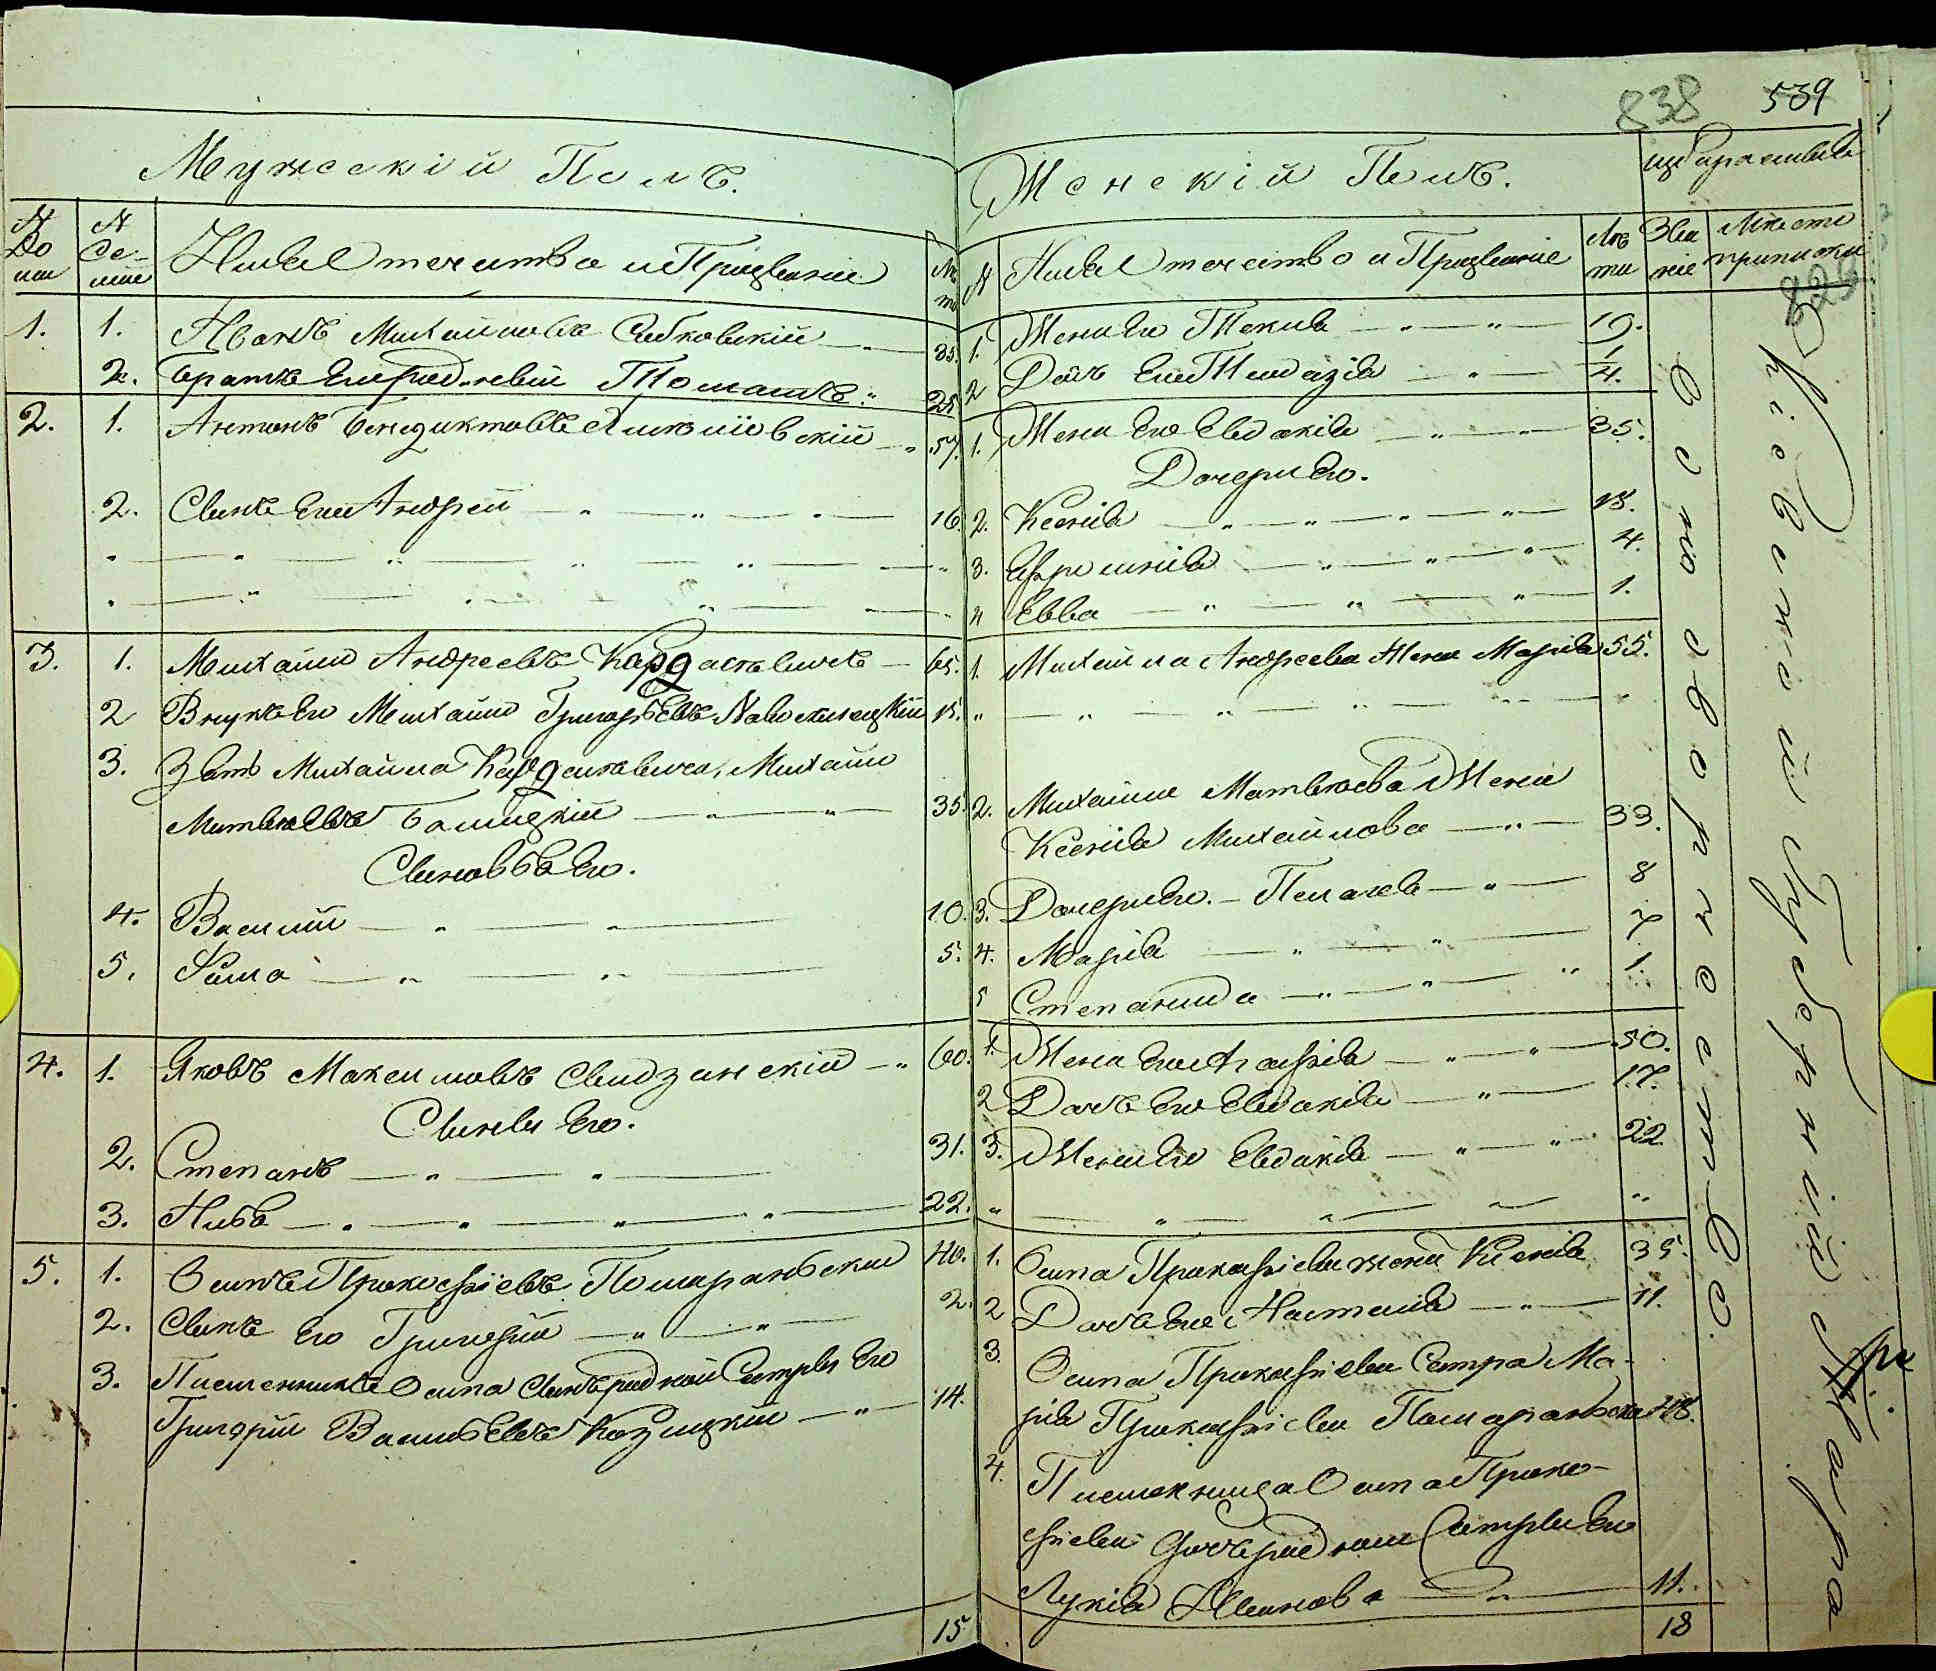 838 539
Мужескій Полъ.
№ До ма
№ Се- мьи
Имя Отечество и Прозваніе
Лѣ та
1. 1. Иванъ Михайловъ Сабковскій 35.
2. братъ Его родневый Томашъ 25
2. 1. Антонъ Бенедиктовъ 57.
2. Сынъ Его Андрей 16
3. 1. Михайло Андреевъ 65.
2 Внукъ Его Михайло Григорьевъ 15.
3. Зять Михайла Михайло
Матвѣевъ Балицкій 35
Сыновья Его.
4. Василій 10.
5. Фома 5.
4. 1. Яковъ Максимовъ Свидзинскій 60.
Сыны Его.
2. Степанъ 31.
3. Иовъ 22.
5. 1. Осипъ Прокофіевъ Помаранскій 40.
2. Сынъ Его Григорій 2.
3. Племенникъ Осипа Сынъ родной Сестры Его
Григорій Васильевъ Козицкій 14.
15
Женскій Полъ.
№ Имя Отечество и Прозваніе
Лѣ та
Зва ніе
Мѣсто приписки
829
1. Жена Его Текля 19.
2 Дочь Его 4.
1. Жена Его Евдокія 35.
Дочери Его.
2. Ксенія 15.
3. Ефросинія 4.
4 Евва 1.
1. Михайла Андреева Жена Марія 55.
2. Михайла Матвѣева Жена
Ксенія Михайлова 33.
3. Дочери Его. - Пелагея 8
4. Марія 7
5 Степанида 1.
1. Жена Его Агафія 50.
2 Дочь Его Евдокія 17.
3. Жена Его Евдокія 22
1. Осипа Прокофіева жена Ксенія 35.
2 Дочь Его Настасія 11.
3. Осипа Прокофіева Сестра Ма-
рія Прокофіева Помаранска 48.
4. Племенница Осипа Проко-
фіева Дочь родной Сестры Его
Лукія 11.
18
Однодворческое
Кіевской Губерніи